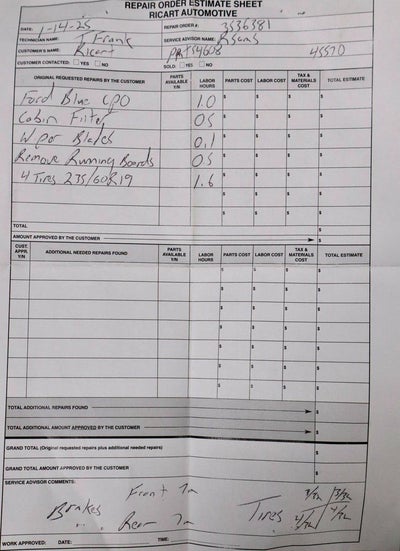 REPAIR ORDER ESTIMATE SHEET
RICART AUTOMOTIVE
DATE: 1-14-25 REPAIR ORDER #: 3536581
TECHNICIAN NAME: T Frank SERVICE ADVISOR NAME:
CUSTOMER'S NAME: Ricart 45570
CUSTOMER CONTACTED: ☐ YES ☐ NO SOLD: ☐ YES ☐ NO
ORIGINAL REQUESTED REPAIRS BY THE CUSTOMER PARTS AVAILABLE Y/N LABOR HOURS PARTS COST LABOR COST TAX & MATERIALS COST TOTAL ESTIMATE
Ford Blue CPO 1.0 $ $ $ $
Cabin Filter 05 $ $ $ $
Wiper Blades 0.1 $ $ $ $
Remove Running Boards 05 $ $ $ $
4 Tires 235/60R19 1.6 $ $ $ $
$ $ $ $
TOTAL $
AMOUNT APPROVED BY THE CUSTOMER $
CUST. APPR. Y/N ADDITIONAL NEEDED REPAIRS FOUND PARTS AVAILABLE Y/N LABOR HOURS PARTS COST LABOR COST TAX & MATERIALS COST TOTAL ESTIMATE
$ $ $ $
$ $ $ $
$ $ $ $
$ $ $ $
$ $ $ $
$ $ $ $
$ $ $ $
TOTAL ADDITIONAL REPAIRS FOUND $
TOTAL ADDITIONAL AMOUNT APPROVED BY THE CUSTOMER $
GRAND TOTAL (Original requested repairs plus additional needed repairs) $
GRAND TOTAL AMOUNT APPROVED BY THE CUSTOMER $
SERVICE ADVISOR COMMENTS:
Front 7m 3/32 3/32
Brakes Tires
Rear 7m 4/32 4/32
WORK APPROVED: DATE: TIME: